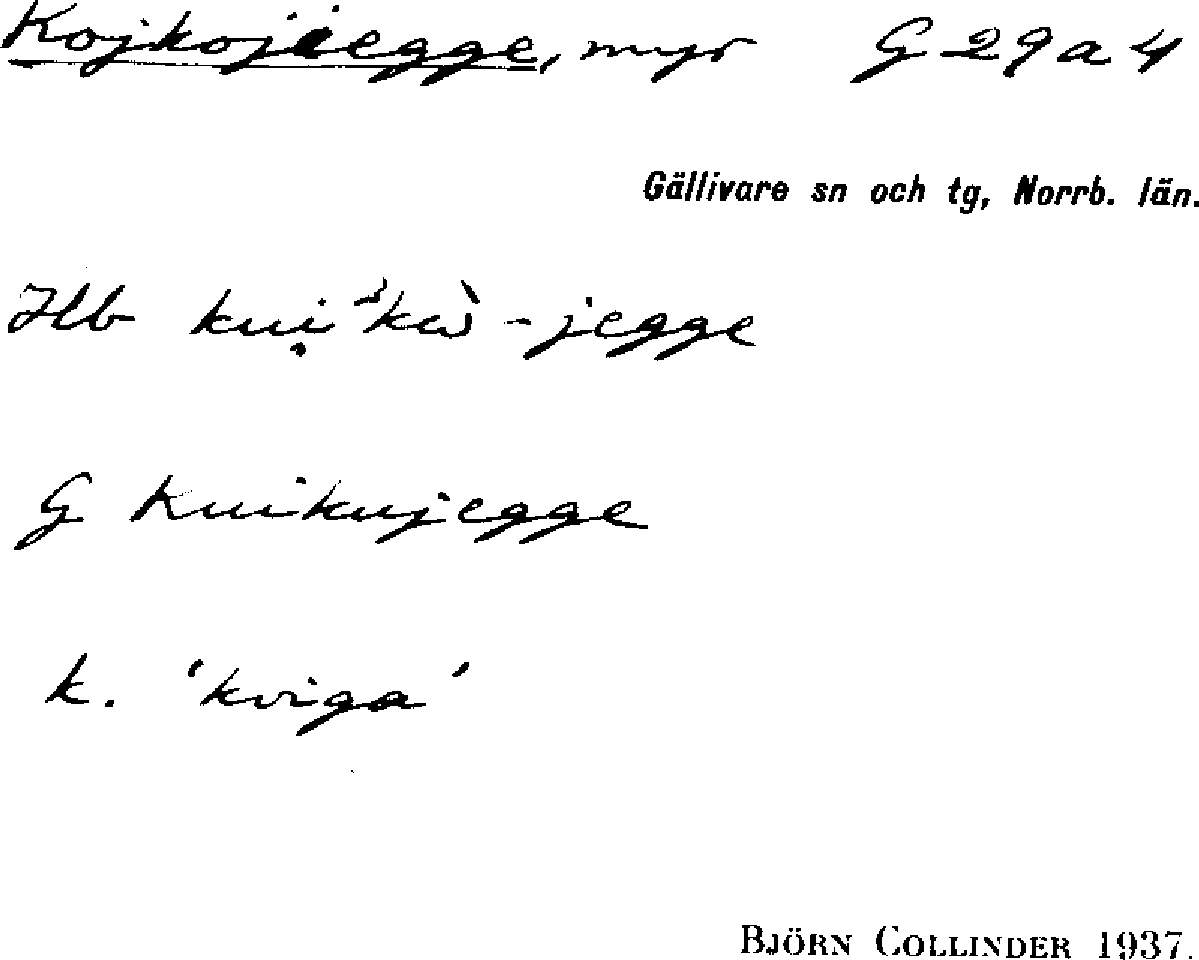 Kojkojjegge, myr G 29 a 4
Gällivare sn och tg, Norrb. län.
Hb kui̭ ́kù-jegge
G Kuikujegge
k. 'kviga'
BJÖRN COLLINDER 1937.